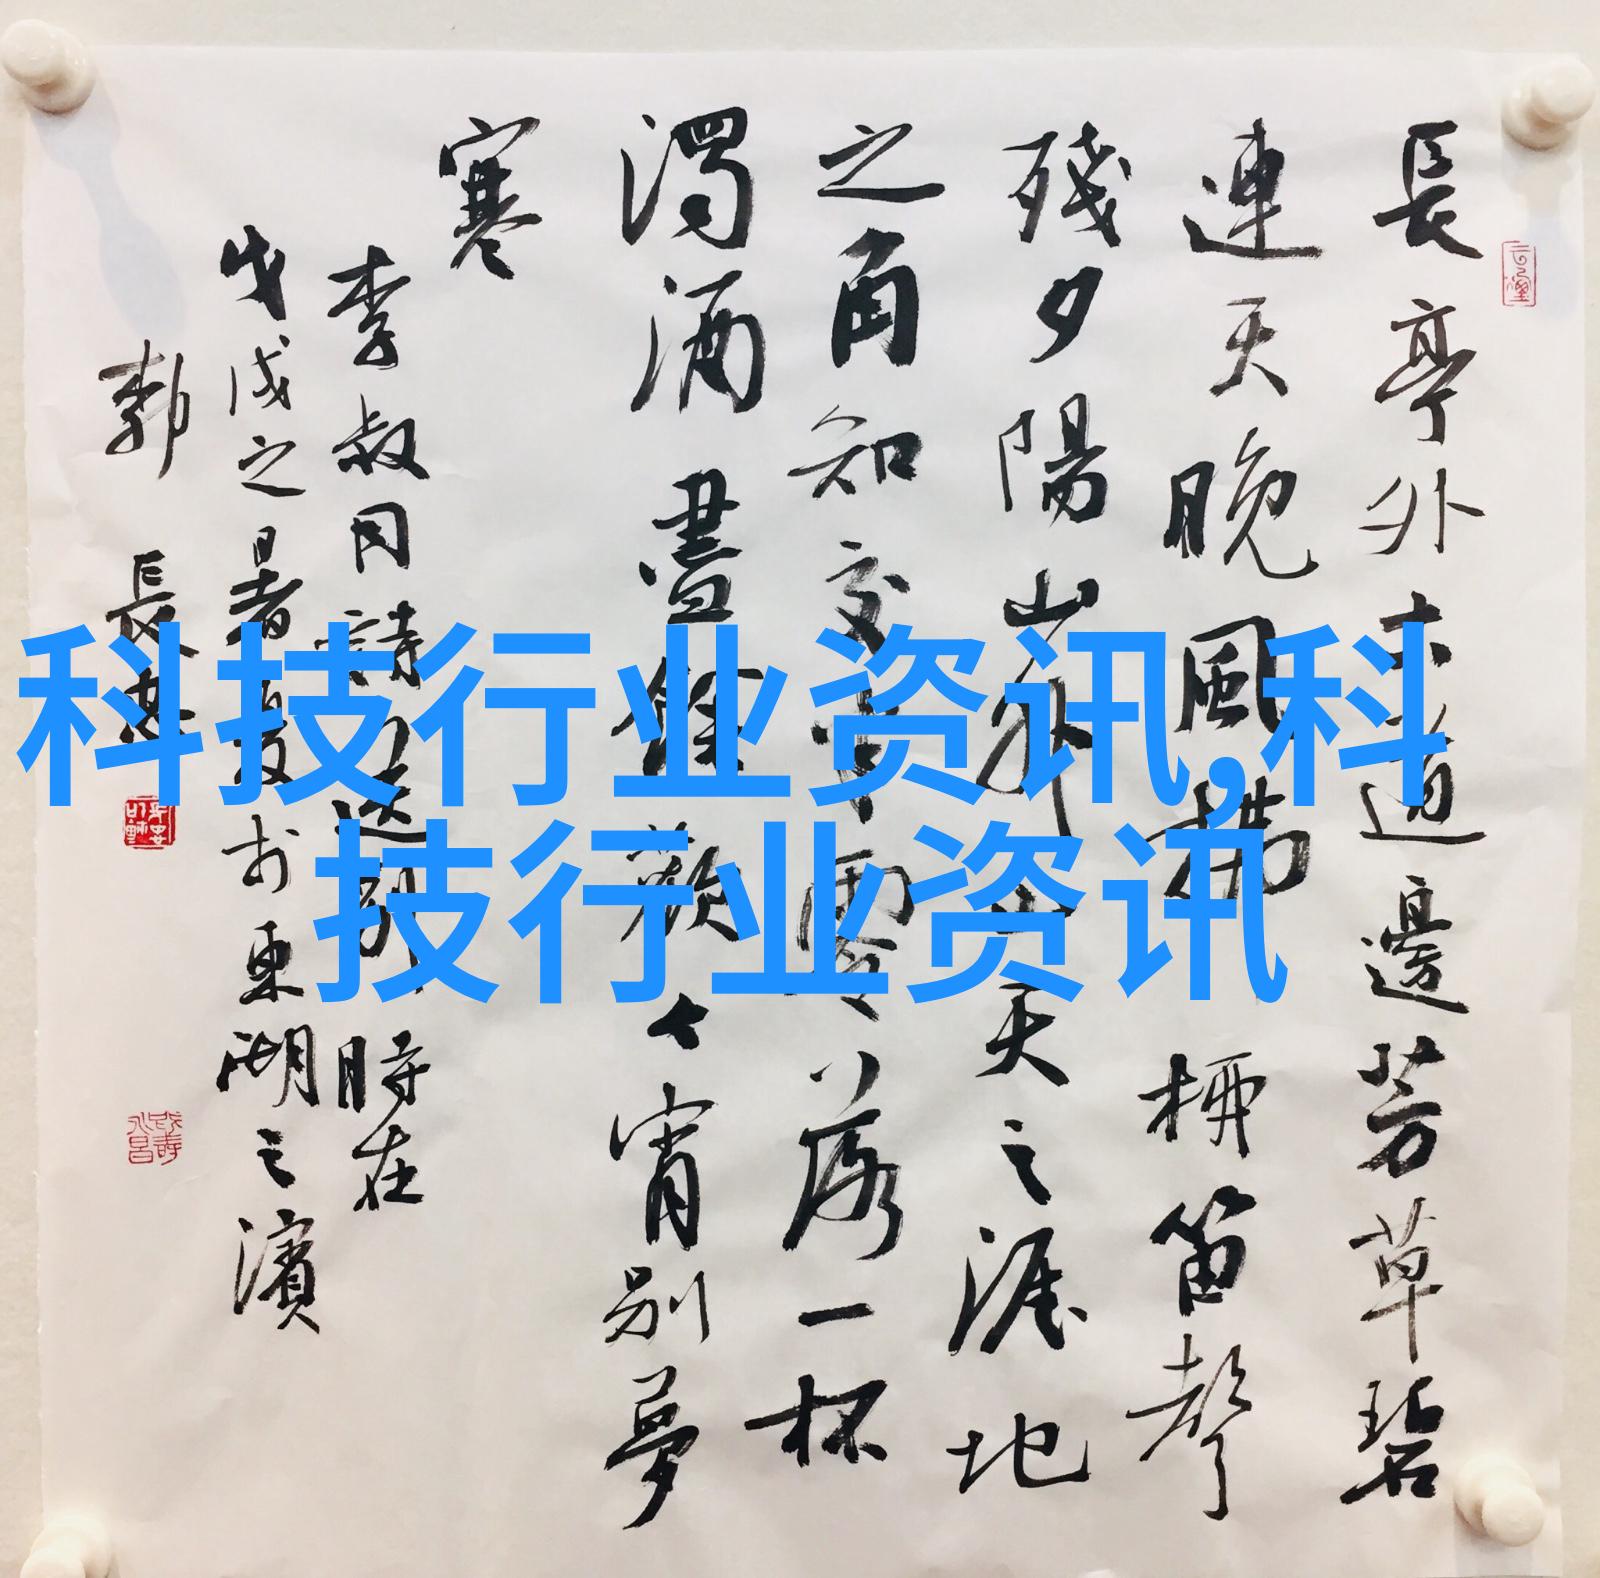 長亭外古道邊芳草碧
連天晚風拂柳笛聲
殘夕陽山外山天之涯地
之角知交半零落一杯
濁酒盡餘歡今宵別夢
寒
李叔同詩送別 時在
戊戌之暑夏於東湖之濱
科技行业资讯,科
技行业资讯